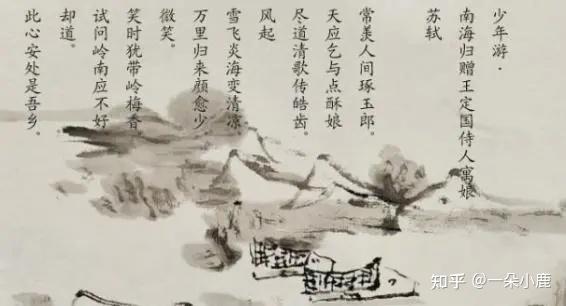 少年游·
南海归赠王定国侍人寓娘
苏轼
常羡人间琢玉郎。
天应乞与点酥娘
尽道清歌传皓齿。
风起
雪飞炎海变清凉
万里归来颜愈少
微笑。
笑时犹带岭梅香。
试问岭南应不好
却道。
此心安处是吾乡。
知乎 @一朵小鹿